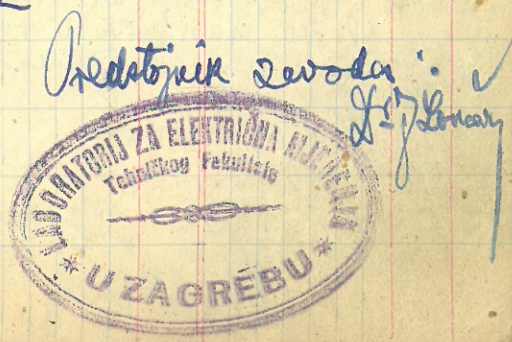 Predstojnik zavoda:
Dr J Lončar
LABORATORIJ ZA ELEKTRIČNA MJERENJA
Tehničkog Fakulteta
* U ZAGREBU *